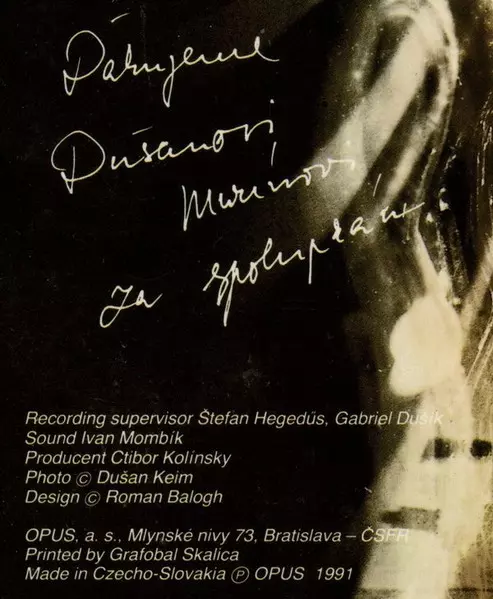 Ďakujeme
Dušanovi
Murínovi
za spoluprácu.
Recording supervisor Štefan Hegedűs, Gabriel Dušík
Sound Ivan Mombík
Producent Ctibor Kolínsky
Photo © Dušan Keim
Design © Roman Balogh
OPUS, a. s., Mlynské nivy 73, Bratislava – ČSFR
Printed by Grafobal Skalica
Made in Czecho-Slovakia ℗ OPUS 1991